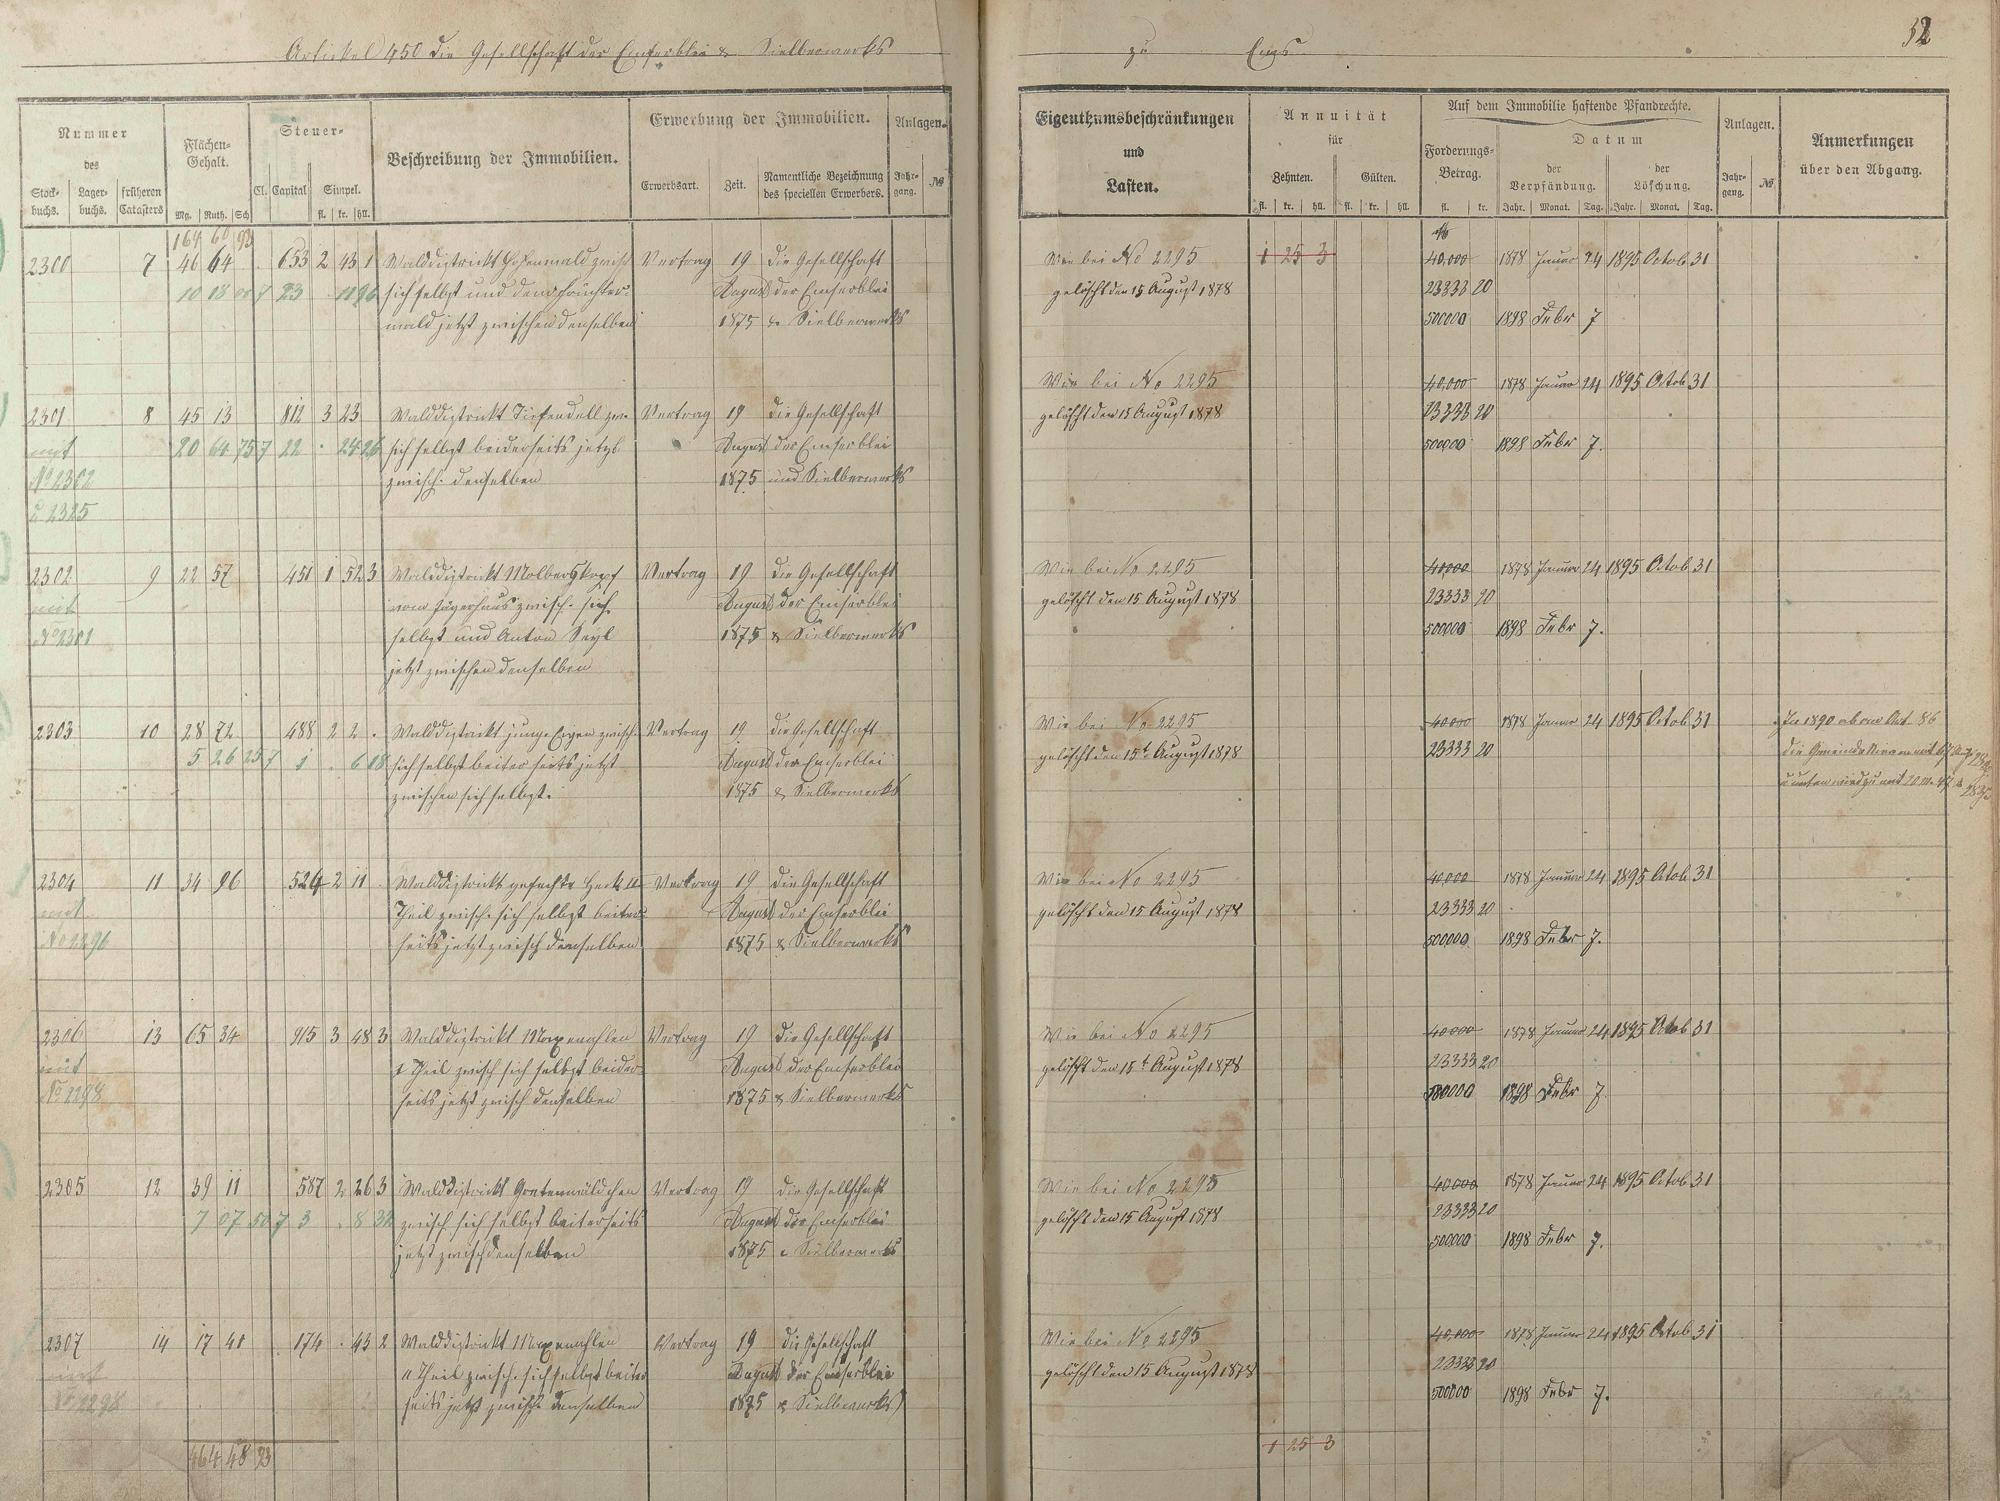 Artikel 450 die Gesellschaft der Emserblei & Sielberwerks
zu Ems
52
Nummer
des
Stock-buchs. Lager-buchs. früheren Catasters
Flächen-Gehalt.
Mg. Ruth. Sch
Steuer-
Cl. Capital Simpel.
fl. kr. hll.
Beschreibung der Immobilien.
Erwerbung der Immobilien.
Erwerbsart. Zeit. Namentliche Bezeichnung des speciellen Erwerbers.
Anlagen.
Jahr-gang. №
Eigenthumsbeschränkungen
und
Lasten.
Annuität
für
Zehnten. Gülten.
fl. kr. hll. fl. kr. hll.
Auf dem Immobilie haftende Pfandrechte.
Forderungs-Betrag.
fl. kr.
Datum
der Verpfändung. der Löschung.
Jahr. Monat. Tag. Jahr. Monat. Tag.
Anlagen.
Jahr-gang. №
Anmerkungen
über den Abgang.
164 60 93
2300 7 46 64 653 2 43 1 Walddistrickt zwisch Vertrag 19 die Gesellschaft Wie bei No 2295 1 25 3 40,000 1878 Januar 24 1895 Octob 31
10 18 007 23 sich selbst und dem August der Emserblei gelöscht den 15 August 1878 23333 20
wald jetzt zwischen denselben 1875 & Sielberwerks 500000 1898 Febr 7
2301 8 45 13 812 3 23 Walddistrickt Tiefendell zw. Vertrag 19 die Gesellschaft Wie bei No 2295 40,000 1878 Januar 24 1895 Octob 31
mit 20 64 75 7 22 24 26 sich selbst beiderseits jetzt August der Emserblei gelöscht den 15 August 1878 23333 20
No 2302 zwisch. denselben 1875 und Sielberwerks 500000 1898 Febr 7.
u 2325
2302 9 22 57 451 1 52 3 Walddistrickt Molberskopf Vertrag 19 die Gesellschaft Wie bei No 2295 40000 1878 Januar 24 1895 Octob 31
mit vom Jägerhaus zwisch. sich August der Emserblei gelöscht den 15 August 1878 23333 20
No 2301 selbst und Anton 1875 & Sielberwerks 500000 1898 Febr 7.
jetzt zwischen denselben
2303 10 28 72 488 2 2 . Walddistrickt junge Eigen zwisch. Vertrag 19 die Gesellschaft Wie bei No 2295 40000 1878 Januar 24 1895 Octob 31
5 26 25 7 1 . 6 18 sich selbst beiterseits jetzt August der Emserblei gelöscht den 15t August 1878 23333 20
zwischen sich selbst. 1875 & Sielberwerks
2304 11 34 96 524 2 11 Walddistrickt Heck II Vertrag 19 die Gesellschaft Wie bei No 2295 40,000 1878 Januar 24 1895 Octob 31
mit Theil zwisch. sich selbst beiter- August der Emserblei gelöscht den 15 August 1878 23333 20
No 2296 seits jetzt zwisch denselben 1875 & Sielberwerks 500000 1898 Febr 7.
2306 13 65 34 915 3 48 3 Walddistrickt Vertrag 19 die Gesellschaft Wie bei No 2295 40000 1878 Januar 24 1895 Octob 31
mit I Theil zwisch sich selbst beider- August der Emserblei gelöscht den 15t August 1878 23333 20
No 2298 seits jetzt zwisch denselben 1875 & Sielberwerks 500000 1898 Febr 7
2305 12 39 11 587 2 26 3 Walddistrickt Vertrag 19 die Gesellschaft Wie bei No 2295 40000 1878 Januar 24 1895 Octob 31
7 07 50 7 3 . 8 zwisch sich selbst beiterseits August der Emserblei gelöscht den 15 August 1878 23333 20
jetzt zwisch denselben 1875 & Sielberwerks 500000 1898 Febr 7.
2307 14 17 41 174 . 43 2 Walddistrickt Vertrag 19 die Gesellschaft Wie bei No 2295 40,000 1878 Januar 24 1895 Octob 31
mit II Theil zwisch. sich selbst beiter August der Emserblei gelöscht den 15 August 1878 23333 20
No 2298 seits jetzt zwisch denselben 1875 & Sielberwerks 500000 1898 Febr 7.
464 48 93 1 25 3